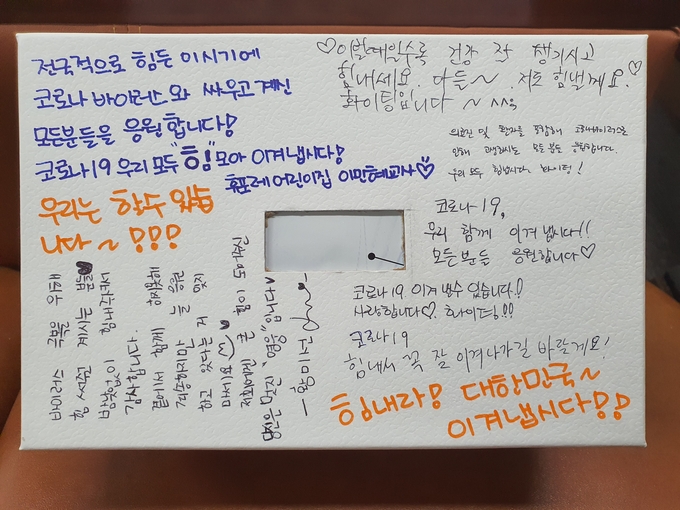 전국적으로 힘든 이시기에
코로나 바이러스와 싸우고계신
모든분들을 응원합니다!
코로나19 우리 모두 "힘"모아 이겨냅시다!
휴포레어린이집 이민혜교사♡
우리는 할수 있습
니다~!!!
♡이럴때일수록 건강 잘 챙기시고
힘내세요. 다들~ 저도 힘낼게요.♡
화이팅입니다~^^
의료진 및 환자를 포함해 코로나바이러스로
인해 모든 분들 응원합니다.
우리 모두 힘냅시다. 화이팅!
코로나 19,
우리 함께 이겨 냅시다!!
모든분들 응원합니다♡
코로나19 이겨낼수 있습니다!
사랑합니다♡ 화이팅!!!
코로나19
힘내서 꼭 잘 이겨나가길 바랄게요!
힘내라! 대한민국~
이겨냅시다!!
보이지 않는
밤낮없이
감사합니다.
곁에서 함께
하고 있다는 거 잊지
마세요
저희에겐 큰 힘이
당신은 멋진 "영웅"입니다